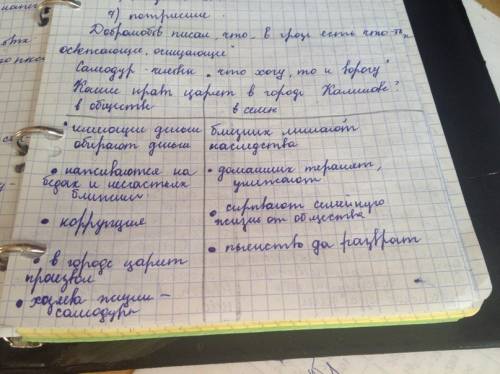 7) потрясение
Добролюбов писал, что „в грозе есть что-то
освежающее, ободряющее"
Самодур - человек „что хочу, то и ворочу"
Какие нравы царят в городе Калинове?
в обществе
в семье
• имеющие деньги
обирают
• наживаются на
бедах и несчастьях
ближних
• коррупция
• в городе царит
произвол
• хозяева жизни –
самодуры
близких лишают
наследства
• домашних тиранят,
унижают
• скрывают семейную
жизнь от общества
• пьянство да разврат